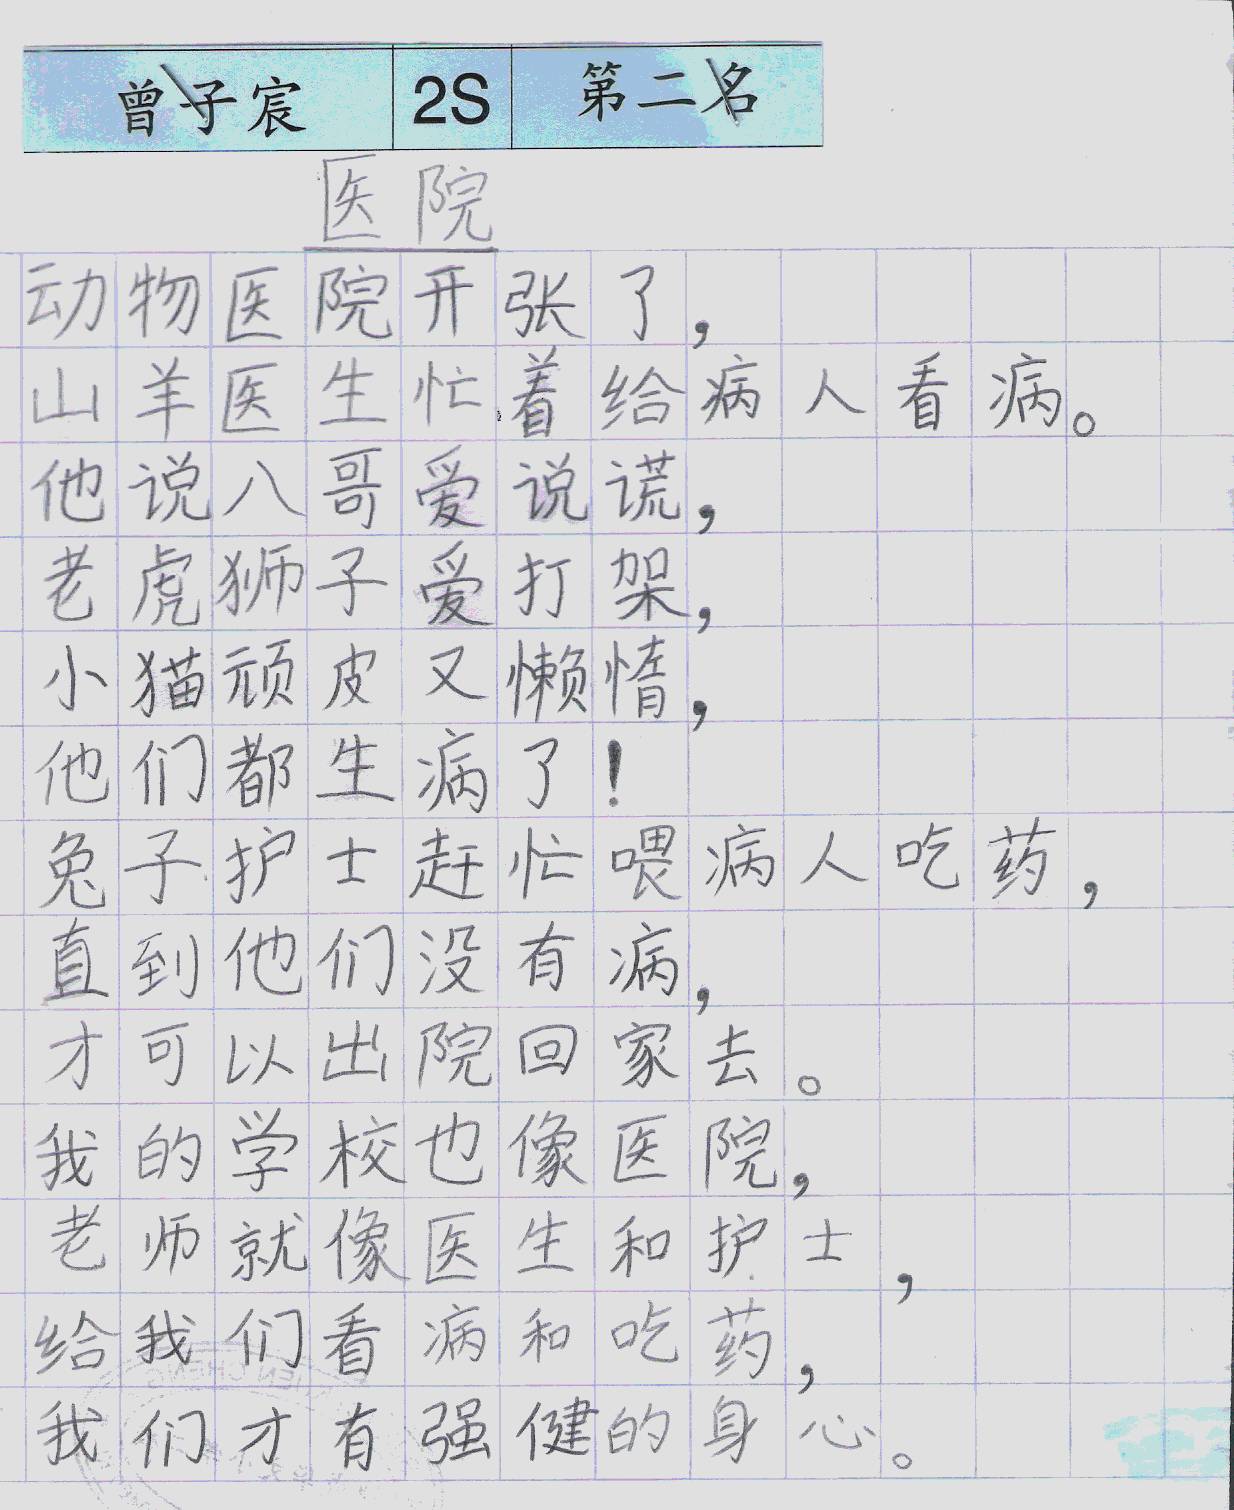 曾子宸 2S 第二名
医院
动物医院开张了，
山羊医生忙着给病人看病。
他说八哥爱说谎，
老虎狮子爱打架，
小猫顽皮又懒惰，
他们都生病了！
兔子护士赶忙喂病人吃药，
直到他们没有病，
才可以出院回家去。
我的学校也像医院，
老师就像医生和护士，
给我们看病和吃药，
我们才有强健的身心。